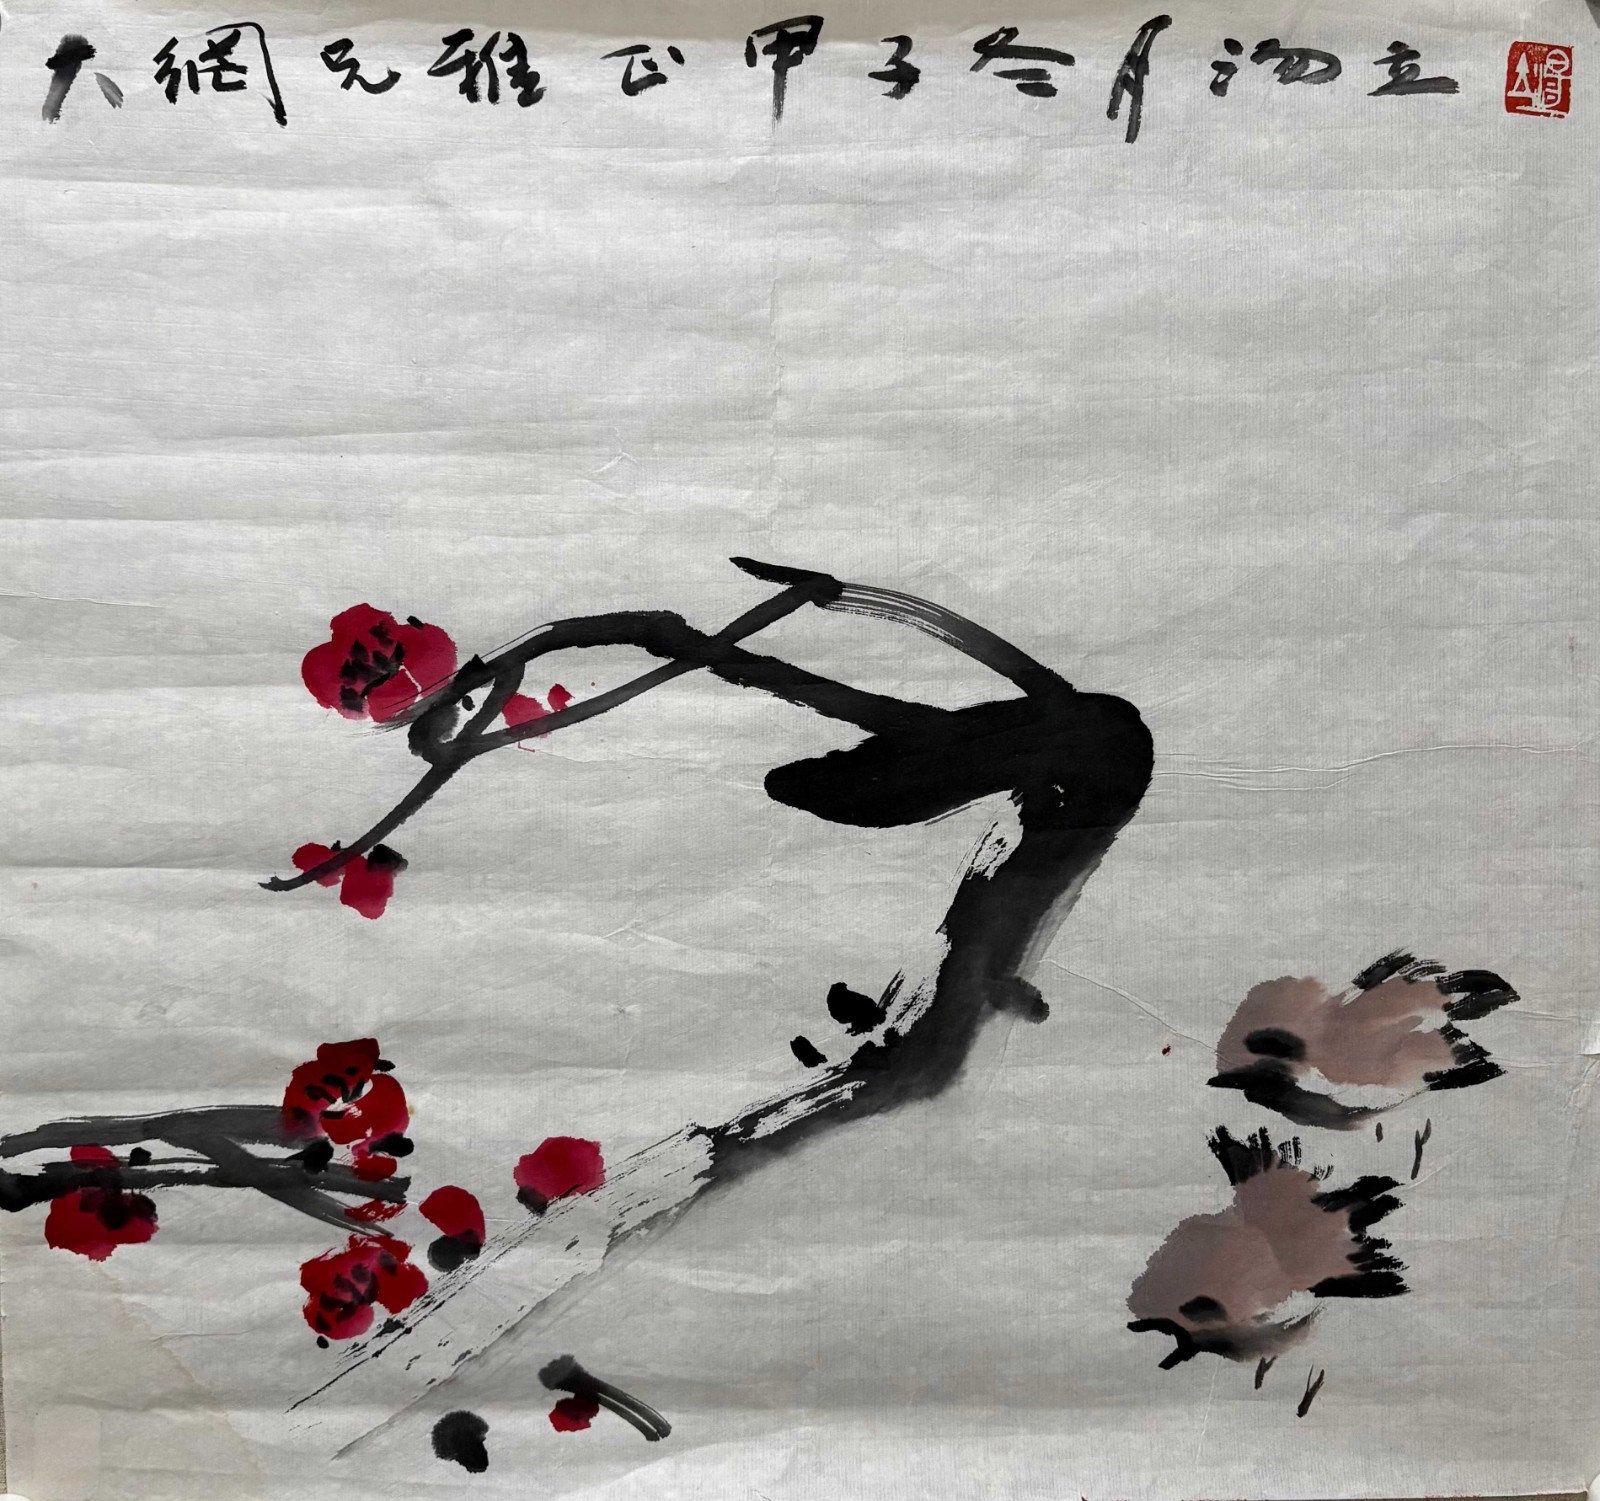 大綱兄雅正甲子冬月汤立